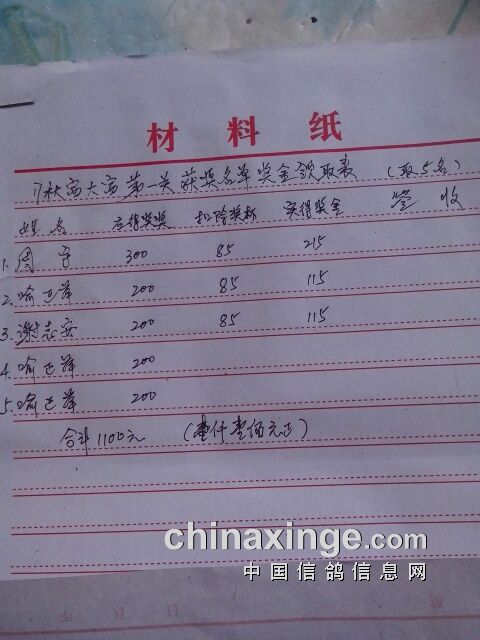 材料纸
17秋富大富第一关获奖名单奖金领取表 (取5名)
姓名 应得奖奖 扣除奖杯 实得奖金 签收
1. 周宇 300 85 215
2. 喻正萍 200 85 115
3. 谢志安 200 85 115
4. 喻正萍 200
5. 喻正萍 200
合计1100元 (壹仟壹佰元正)
chinaxinge.com
中国信鸽信息网
年 月 日